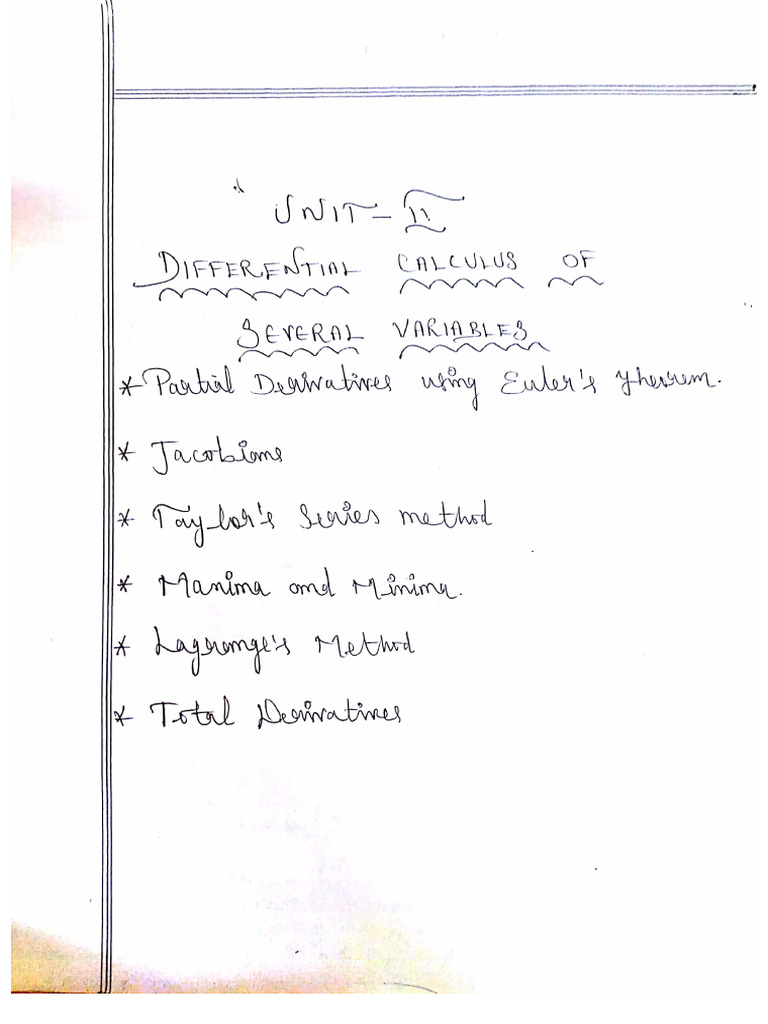 UNIT - II
DIFFERENTIAL CALCULUS OF
SEVERAL VARIABLES
* Partial Derivatives using Euler's Theorem.
* Jacobians
* Taylor's Series method
* Maxima and Minima.
* Lagrange's Method
* Total Derivatives